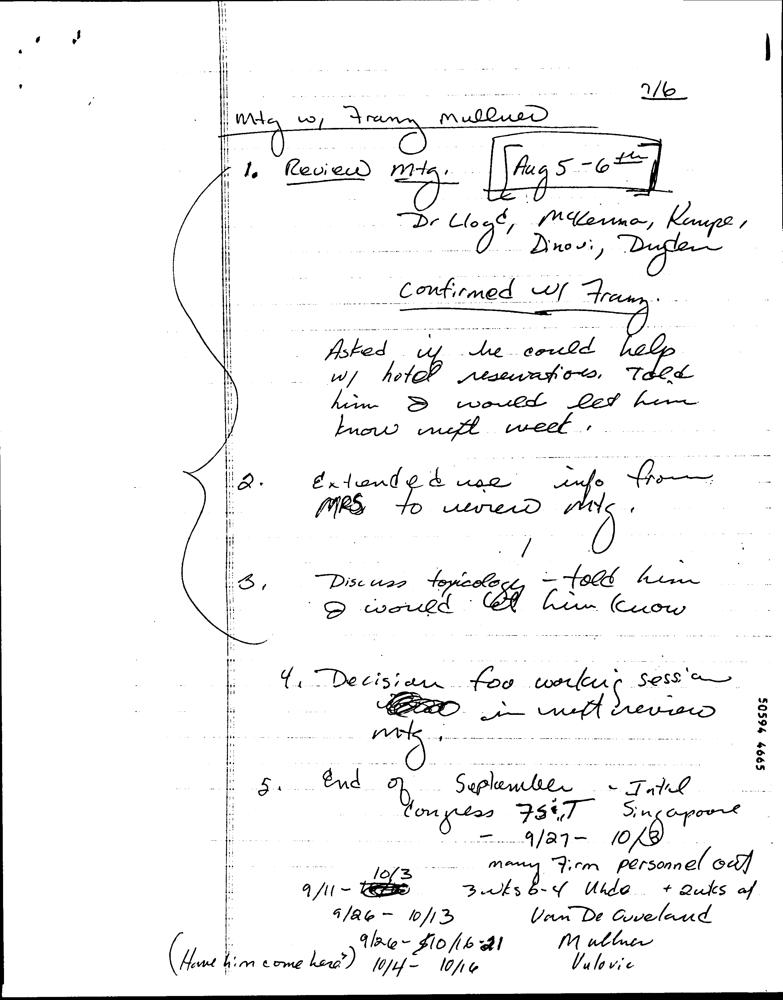 7/6
Mtg w/ Franz Mullner
1. Review Mtg. [Aug 5-6th]
Dr Lloyd, McKenna, Kampe,
Dinovi, Dugden
Confirmed w/ Franz.
Asked if he could help
w/ hotel reservations. Told
him I would let him
know next week.
2. Extended use info from
MRS to review mtg.
3. Discuss toxicology - told him
I would let him know
4. Decision for working session
in next review
mtg.
5. End of September - Intnl
Congress Singapore
- 9/27- 10/3
many Firm personnel out
10/3
9/11- 3 wks + 2 wks of
9/26 - 10/13 Van De
9/26- 10/16 21 Mullner
(Have him come here?) 10/4- 10/16 Vulovic
50594 4665